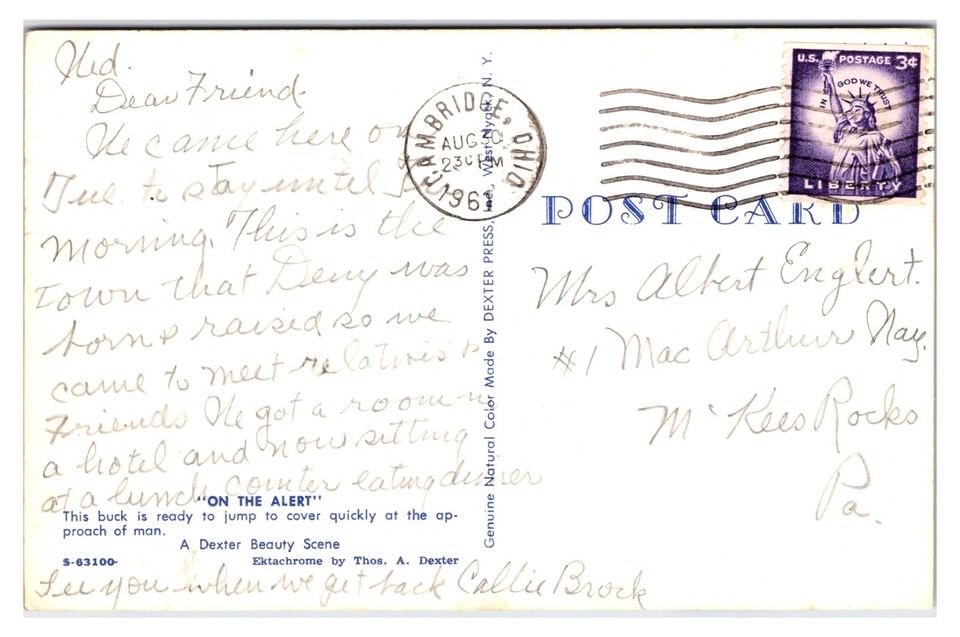 Wed.
Dear Friend
We came here on
Tue to stay until
morning. This is the
town that Deny was
born & raised so we
came to meet relatives &
Friends We got a room in
a hotel and now sitting
at a lunch counter eating dinner
"ON THE ALERT"
This buck is ready to jump to cover quickly at the ap-
proach of man.
A Dexter Beauty Scene
S-63100- Ektachrome by Thos. A. Dexter
See you when we get back Callie Brock
Genuine Natural Color Made By DEXTER PRESS, Inc., West Nyack, N. Y.
CAMBRIDGE, OHIO
AUG 30
230 PM
196
U.S. POSTAGE 3¢
IN GOD WE TRUST
LIBERTY
POST CARD
Mrs Albert Englert.
#1 Mac Arthur Way.
Mc Kees Rocks
Pa.